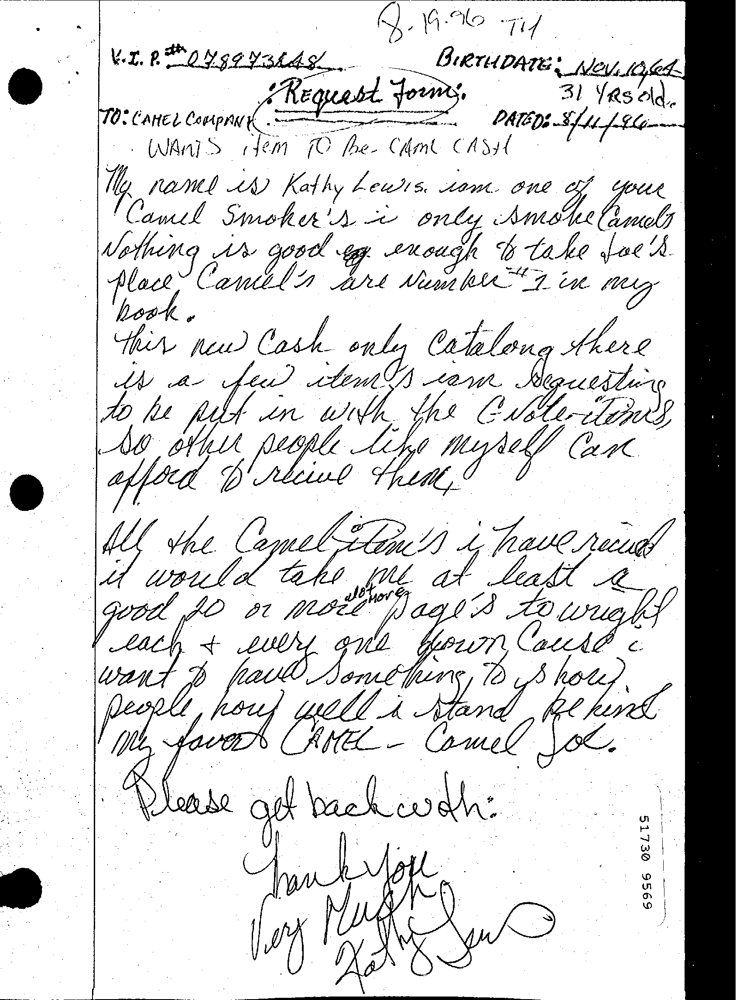 8-19-96 TH
V.I.P.# 078973648
BIRTHDATE: Nov. 10, 64
: Request Form:
31 YRS old.
TO: CAMEL COMPANY
DATED: 8/11/96
WANTS item TO Be CAML CASH
My name is Kathy Lewis. iam one of your
Camel Smoker's i only smoke Camels
Nothing is good enough to take Joe's
place, Camel's are Number #1 in my
book.
This new Cash only Catalong there
is a few item's iam requesting
to be put in with the C-Note items,
so other people like myself Can
afford to recive them,
All the Camel item's i have recived
it would take me at least a
good 20 or more alot more page's to wright
each + every one down Cause i
want to have something to show
people how well i stand behind
my favort CAMEL - Camel Joe.
Please get back with:
Thank you
Very Much
Kathy Lewis
51730 9569